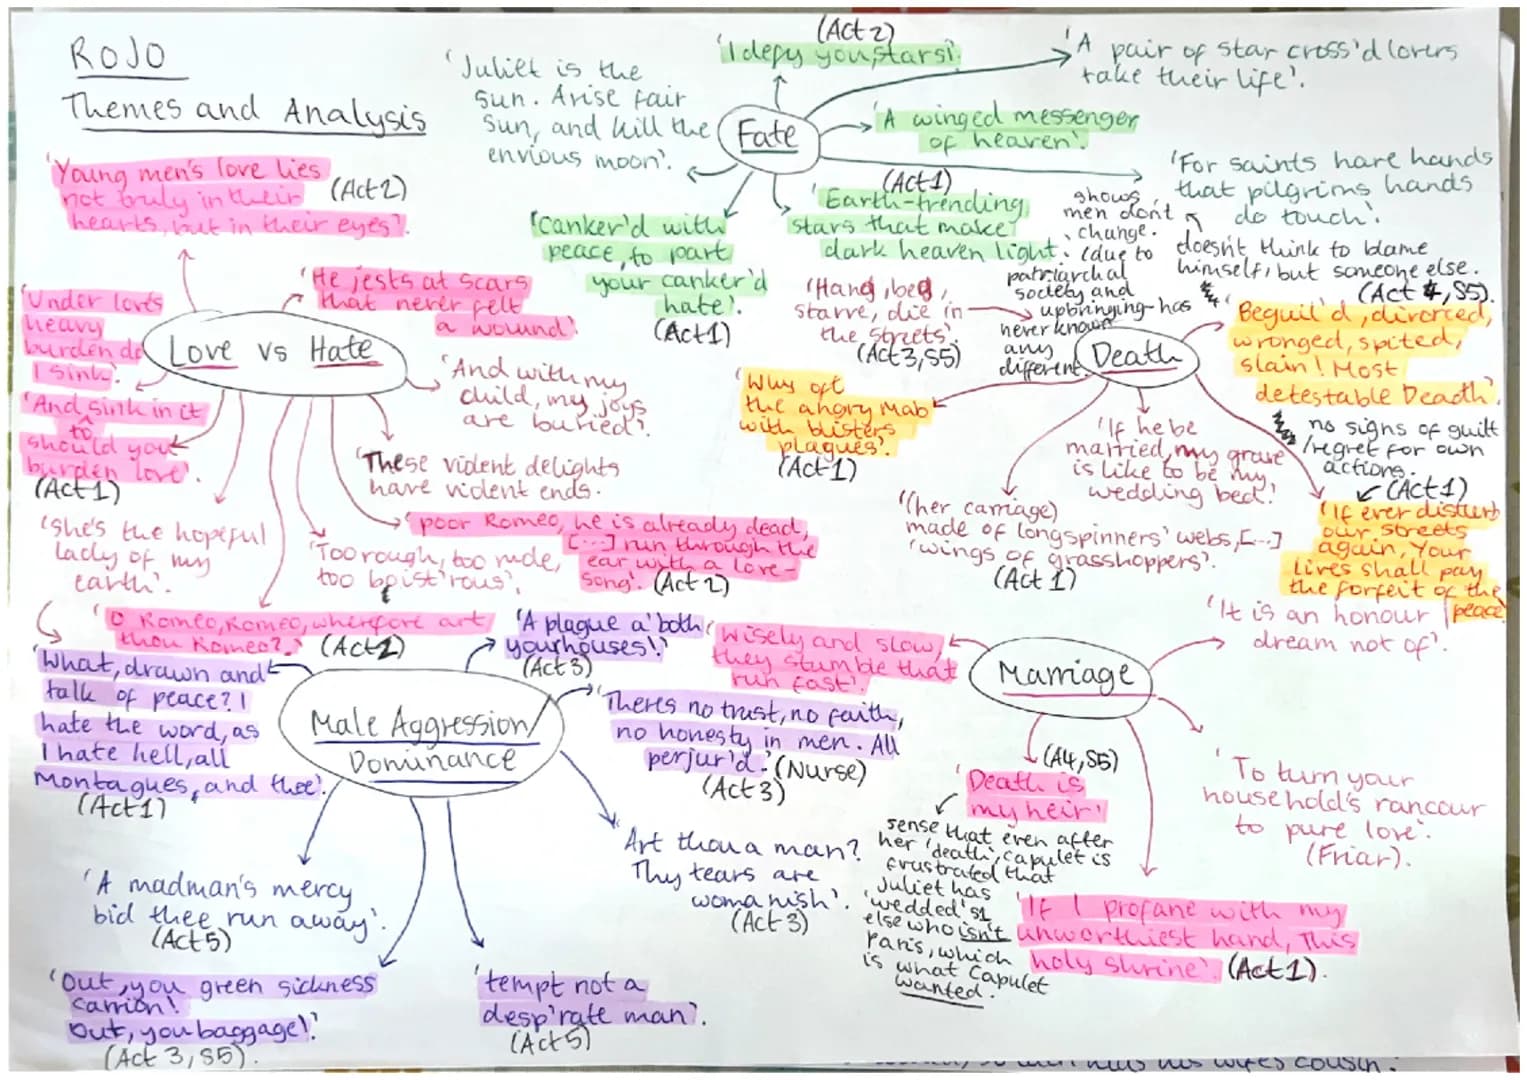 ROJO
Themes and Analysis
'Juliet is the
sun. Arise fair
sun, and kill the
envious moon'.
(Act 2)
'I defy you, stars!'
'A pair of star cross'd lovers
take their life'.
Fate
'A winged messenger
of heaven'.
'For saints have hands
that pilgrims hands
do touch'.
(Act1)
'Earth-trending
stars that make
dark heaven light.
'canker'd with
peace, to part
your canker'd
hate'.
(Act1)
'Young men's love lies
not truly in their
hearts, but in their eyes'.
(Act2)
'He jests at scars
that never felt
a wound'.
'Under lovts
heavy
burden do
I sink'.
Love vs Hate
'And sink in it
to
should you
burden love'.
(Act1)
'And with my
child, my joys
are buried'.
'These violent delights
have violent ends.
'She's the hopeful
lady of my
earth'.
'Too rough, too rude,
too boist'rous'.
'poor Romeo, he is already dead,
[...] run through the
ear with a love-
song'. (Act 2)
'O Romeo, Romeo, wherefore art
thou Romeo?.'
(Act2)
shows
men don't
change.
(due to
patriarchal
society and
upbringing-has
never known
any
different.
doesn't think to blame
himself, but someone else.
(Act 4, S5).
'Hang, beg,
starve, die in
the streets'.
(Act3, S5)
Death
Beguil'd, divorced,
wronged, spited,
slain! Most
detestable Death'.
no signs of guilt
/regret for own
actions.
'Why oft
the angry Mab
with blisters
plagues'.
(Act1)
'If he be
married, my grave
is like to be my
wedding bed'.
'(her carriage)
made of longspinners' webs, [...]
'wings of grasshoppers'.
(Act 1)
(Act1)
'If ever disturb
our streets
again, your
lives shall pay
the forfeit of the
peace
'What, drawn and
talk of peace? I
hate the word, as
I hate hell, all
Montagues, and thee'.
(Act1)
'A plague a' both
your houses!'
(Act3)
Male Aggression/
Dominance
'Theres no trust, no faith,
no honesty in men. All
perjur'd.' (Nurse)
(Act3)
Art thou a man?
Thy tears are
womanish'.
(Act3)
'A madman's mercy
bid thee run away'.
(Act5)
'Out, you green sickness
carrion!
Out, you baggage!'.
(Act 3, S5).
'tempt not a
desp'rate man'.
(Act5)
'wisely and slow,
they stumble that
run fast'.
Marriage
'It is an honour I
dream not of'.
'To turn your
household's rancour
to pure love'.
(Friar).
(A4, S5)
'Death is
my heir'
sense that even after
her 'death', Capulet is
frustrated that
Juliet has
'wedded' s1
else who isn't
Paris, which
is what Capulet
wanted.
'If I profane with my
unworthiest hand, This
holy shrine'. (Act1).
his wife's cousin.